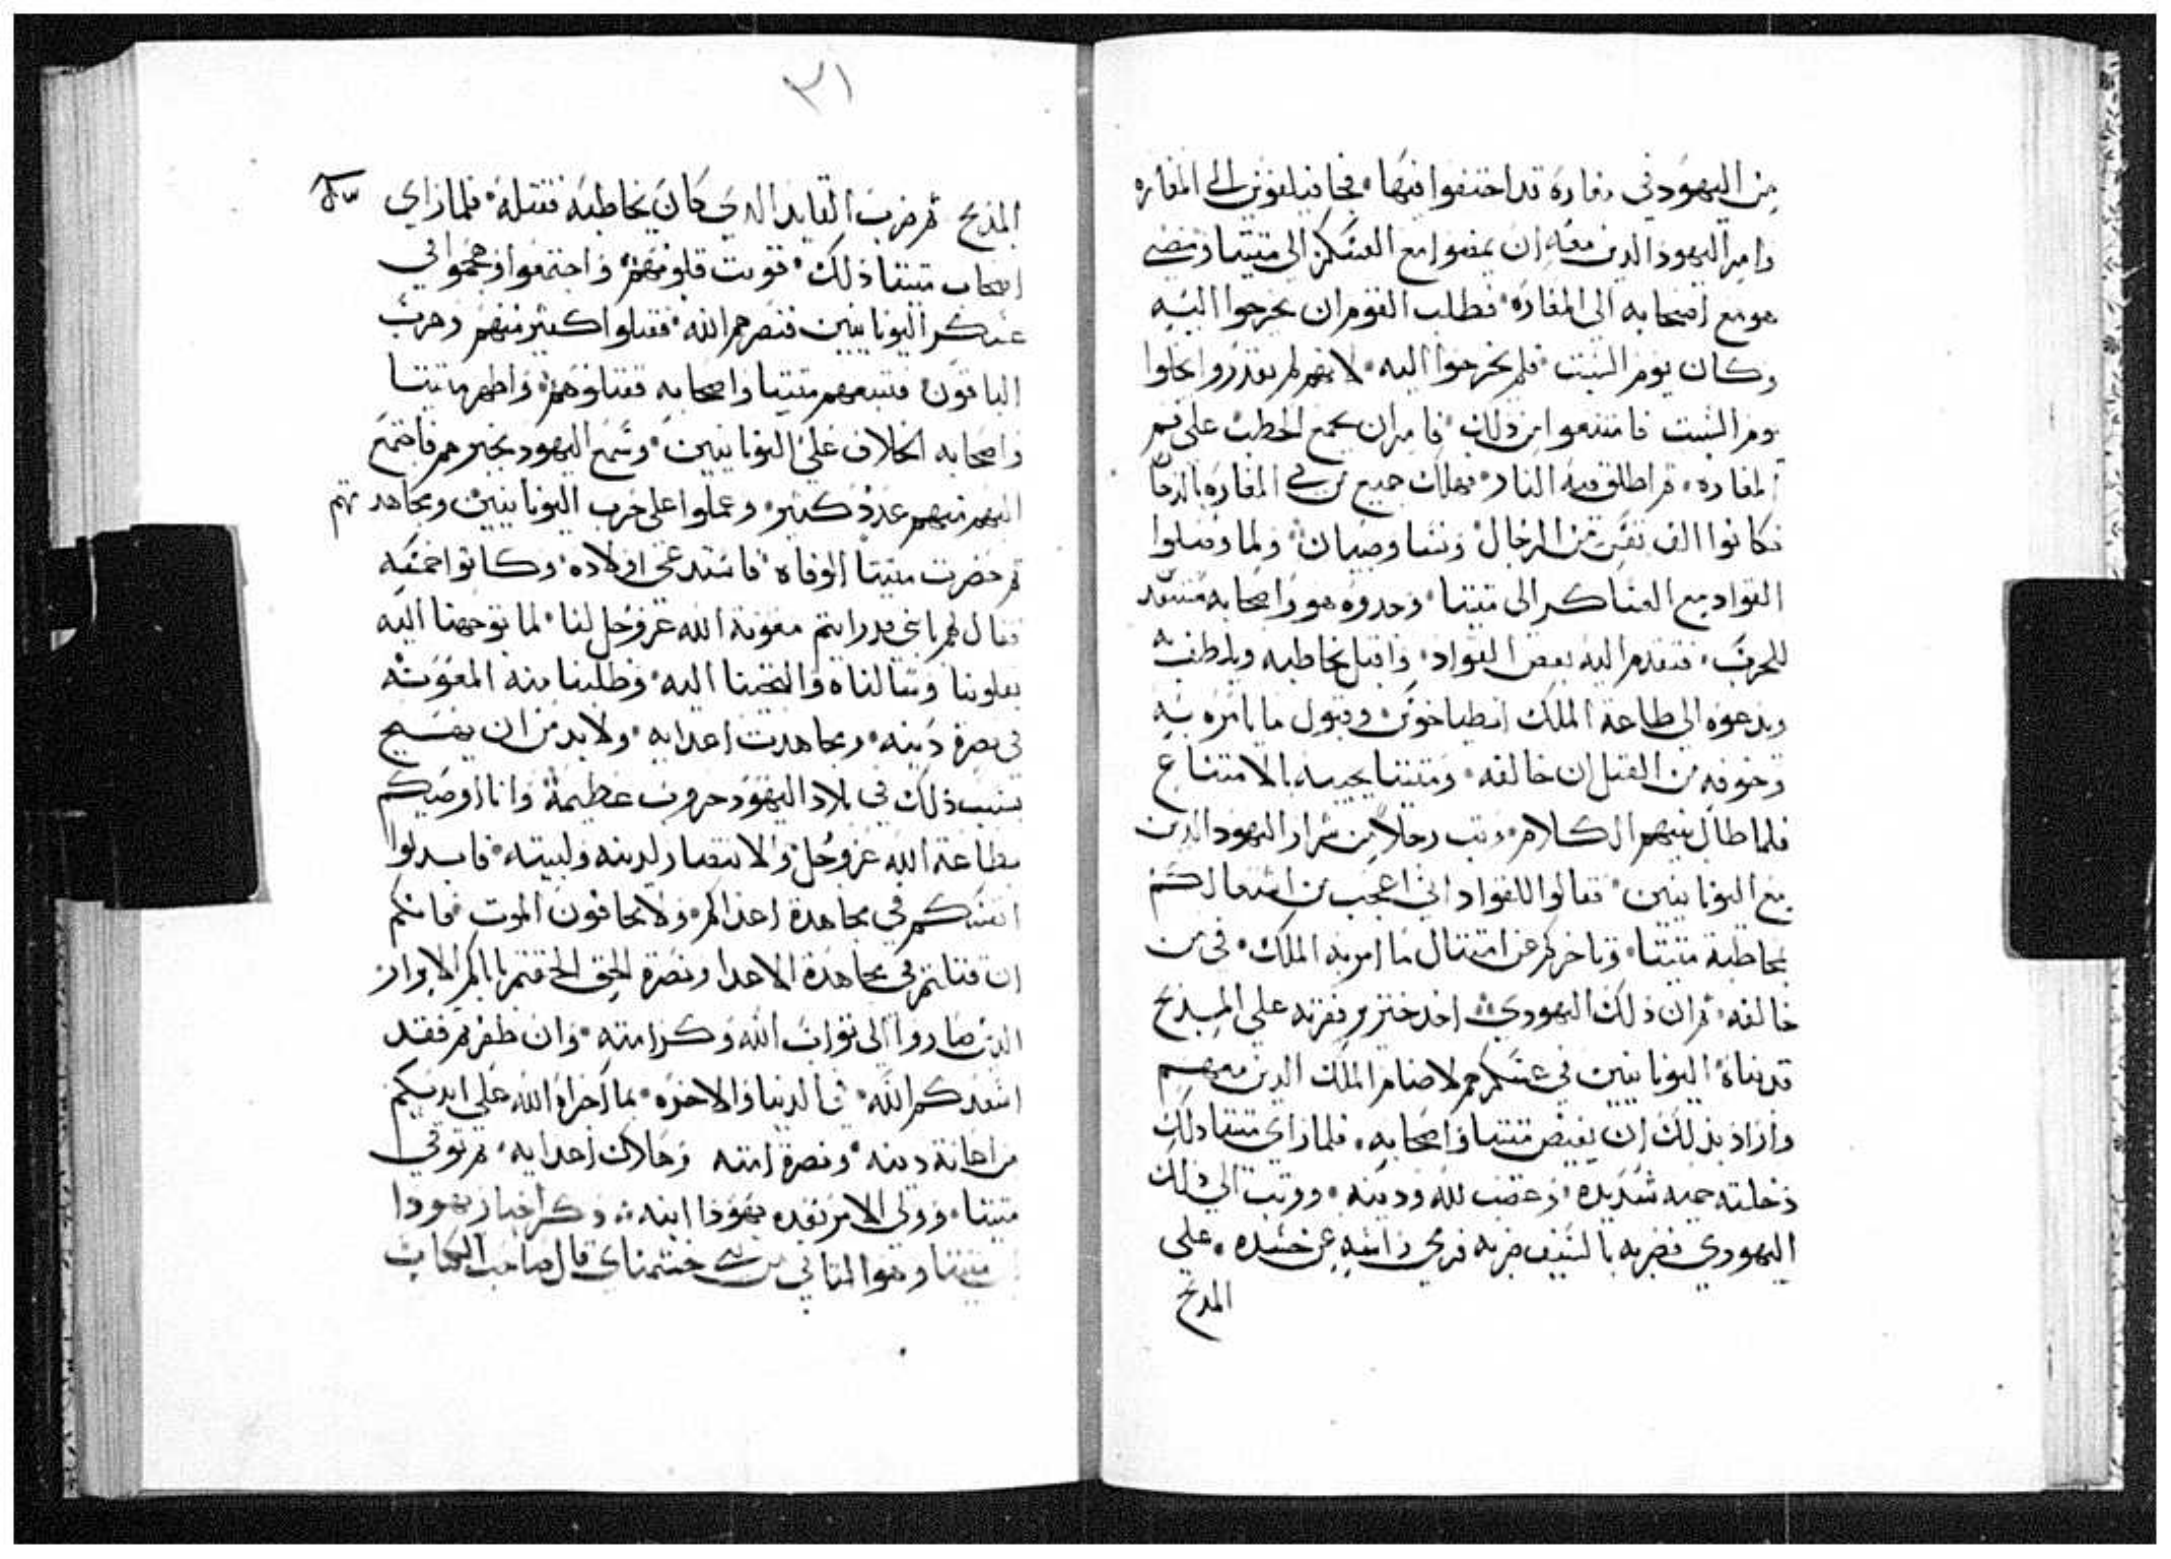 من اليهود في مغارة قد اختفوا فيها فجا فيلفوس الي المغاره
وامر اليهود الدين معه ان يمضوا مع العسكر الى متيتيا ومضى
هو مع اصحابه الى المغارة فطلب القوم ان يخرجوا اليه
وكان يوم السبت فلم يخرجوا اليه لانهم لم يقدروا يحلوا
يوم السبت فامتنعوا من ذلك فامر ان يجمع الحطب على فم
المغاره ثم اطلق فيه النار فهلك جميع من في المغاره بالدخان
فكانوا الف نفس من الرجال ونسا وصبيان ولما وصلوا
القواد مع العساكر الى متيتيا وجدوه هو واصحابه مستعد
للحرب فتقدم اليه بعض القواد واقبل يخاطبه ويلاطفه
ويدعوه الى طاعة الملك انطياخوس وقبول ما يامره به
وخوفه من القتل ان خالفه ومتيتيا يجيبه بالامتناع
فلما طال بينهم الكلام وتب رجلا من شرار اليهود الدين
مع اليونانيين فقالوا للقواد اني اعجب من اشتغالكم
بمخاطبة متيتيا وتاخركم عن امتتال ما امر به الملك في من
خالفه ثم ان ذلك اليهودي اخد خنزير وقربه على المدبح
قد بناه اليونانيين في عسكرهم لاصنام الملك الدين معهم
واراد بذلك ان يغيض متيتيا واصحابه فلما راى متيتيا ذلك
دخلته حميه شديده وغضب لله ودينه ووتب الى ذلك
اليهودي فضربه بالسيف ضربه فرمي راسه عن جسده على
المدبح
٣١
المدبح ثم ضرب القايد الدي كان يخاطبه فقتله فلما راى
اصحاب متيتيا ذلك قويت قلوبهم واجتمعوا وهجموا في
عسكر اليونانيين فنصرهم الله فقتلوا كتير منهم وهرب
الباقون فتبعهم متيتيا واصحابه فقتلوهم واظهر متيتيا
واصحابه الخلاف على اليونانيين وسمع اليهود بخبرهم فاجتمع
اليهم منهم عدد كتير وعملوا على حرب اليونانيين ومجاهدتهم
ثم حضرت متيتيا الوفاه فاستدعى اولاده وكانوا خمسه
فقال لهم يا بني قد رايتم معونة الله عز وجل لنا لما توجهنا اليه
بقلوبنا وسالناه والتجينا اليه وطلبنا منه المعونه
في نصرة دينه ومجاهدت اعدايه ولا بد من ان
بسبب ذلك في بلاد اليهود حروب عظيمة وانا اوصيكم
بطاعة الله عز وجل والانتصار لدينه ولبيته فابدلوا
انفسكم في مجاهدة اعداكم ولا تخافون الموت فانكم
ان قتلتم في مجاهدة الاعدا ونصرة الحق الحقتم بابايكم الابرار
الدين صاروا الى تواب الله وكرامته وان ظفرتم فقد
اسعدكم الله في الدنيا والاخره بما اجراه الله على ايديكم
من اعانة دينه ونصرة امته وهلاك اعدايه ثم توفى
متيتيا وولى الامر بعده يهودا ابنه ذكر اخبار يهودا
بن متيتيا وهو التاني من بني حشمناي قال صاحب الكتاب